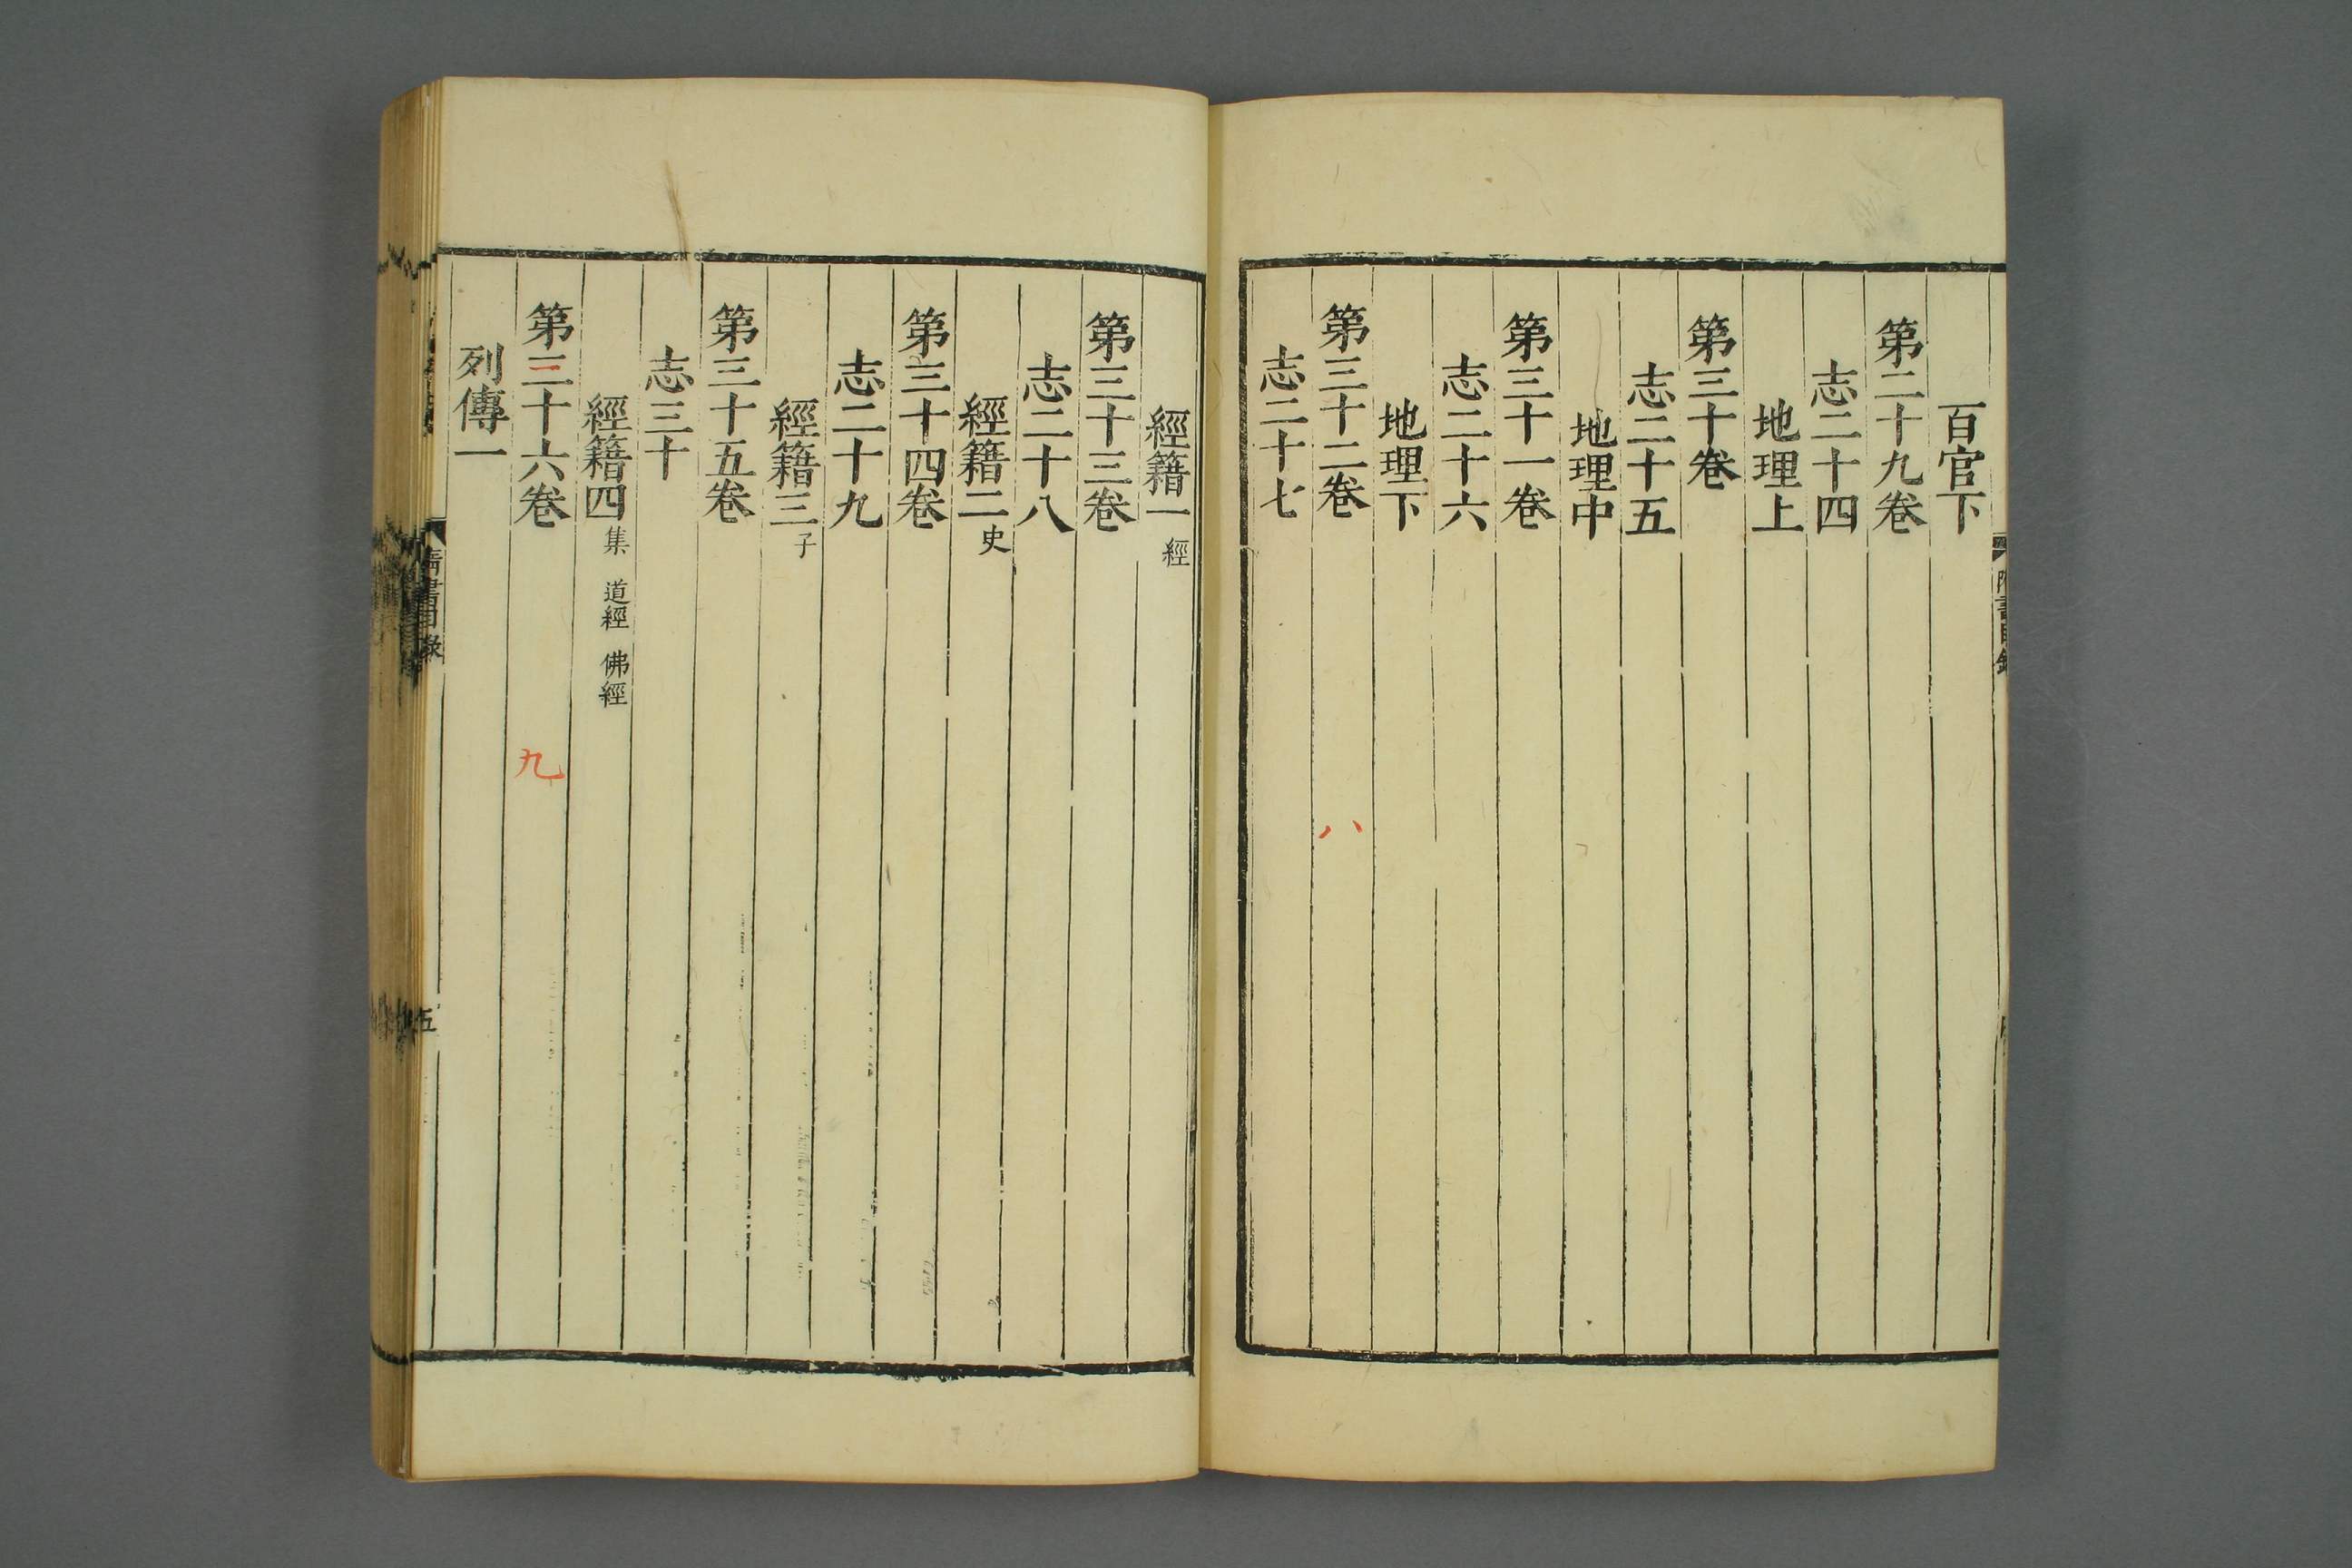 百官下
第二十九卷
志二十四
地理上
第三十卷
志二十五
地理中
第三十一卷
志二十六
地理下
第三十二卷 八
志二十七
經籍一 經
第三十三卷
志二十八
經籍二 史
第三十四卷
志二十九
經籍三 子
第三十五卷
志三十
經籍四 集 道經 佛經
第三十六卷 九
列傳一
隋書目錄 五